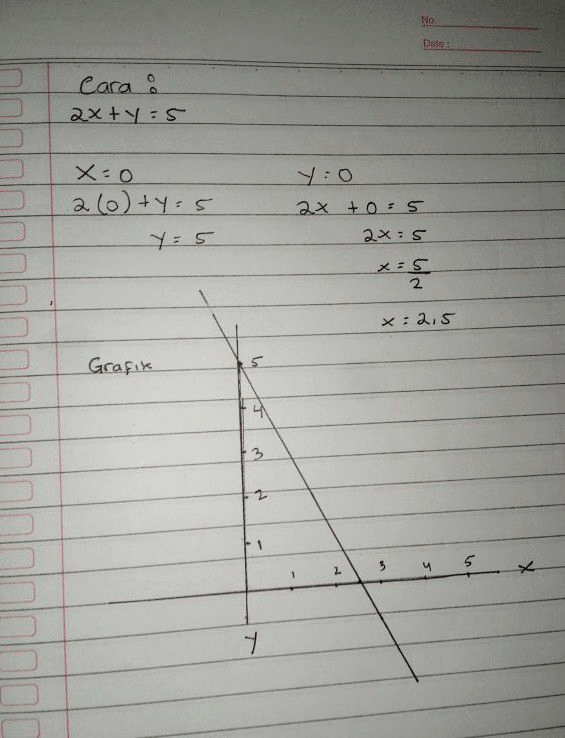 No.
Date :
Cara :
2x + y = 5
x = 0
2(0) + y = 5
y = 5
y = 0
2x + 0 = 5
2x = 5
x = 5/2
x = 2,5
Grafik
5
4
3
2
1
1 2 3 4 5 x
y